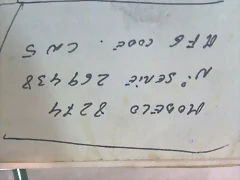 MODELO 8274
N° SERIE 269438
MFG CODE. CN5